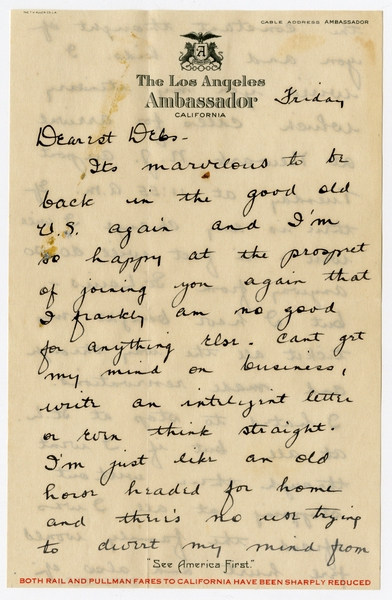 CABLE ADDRESS AMBASSADOR
The Los Angeles
Ambassador
CALIFORNIA
Friday
Dearest Debs -
Its marvelous to be
back in the good old
U.S. again and I'm
so happy at the prospect
of joining you again that
I frankly am no good
for anything else. Cant get
my mind on business,
write an inteligent letter
or even think straight.
I'm just like an old
horse headed for home
and there's no use trying
to divert my mind from
"See America First."
BOTH RAIL AND PULLMAN FARES TO CALIFORNIA HAVE BEEN SHARPLY REDUCED